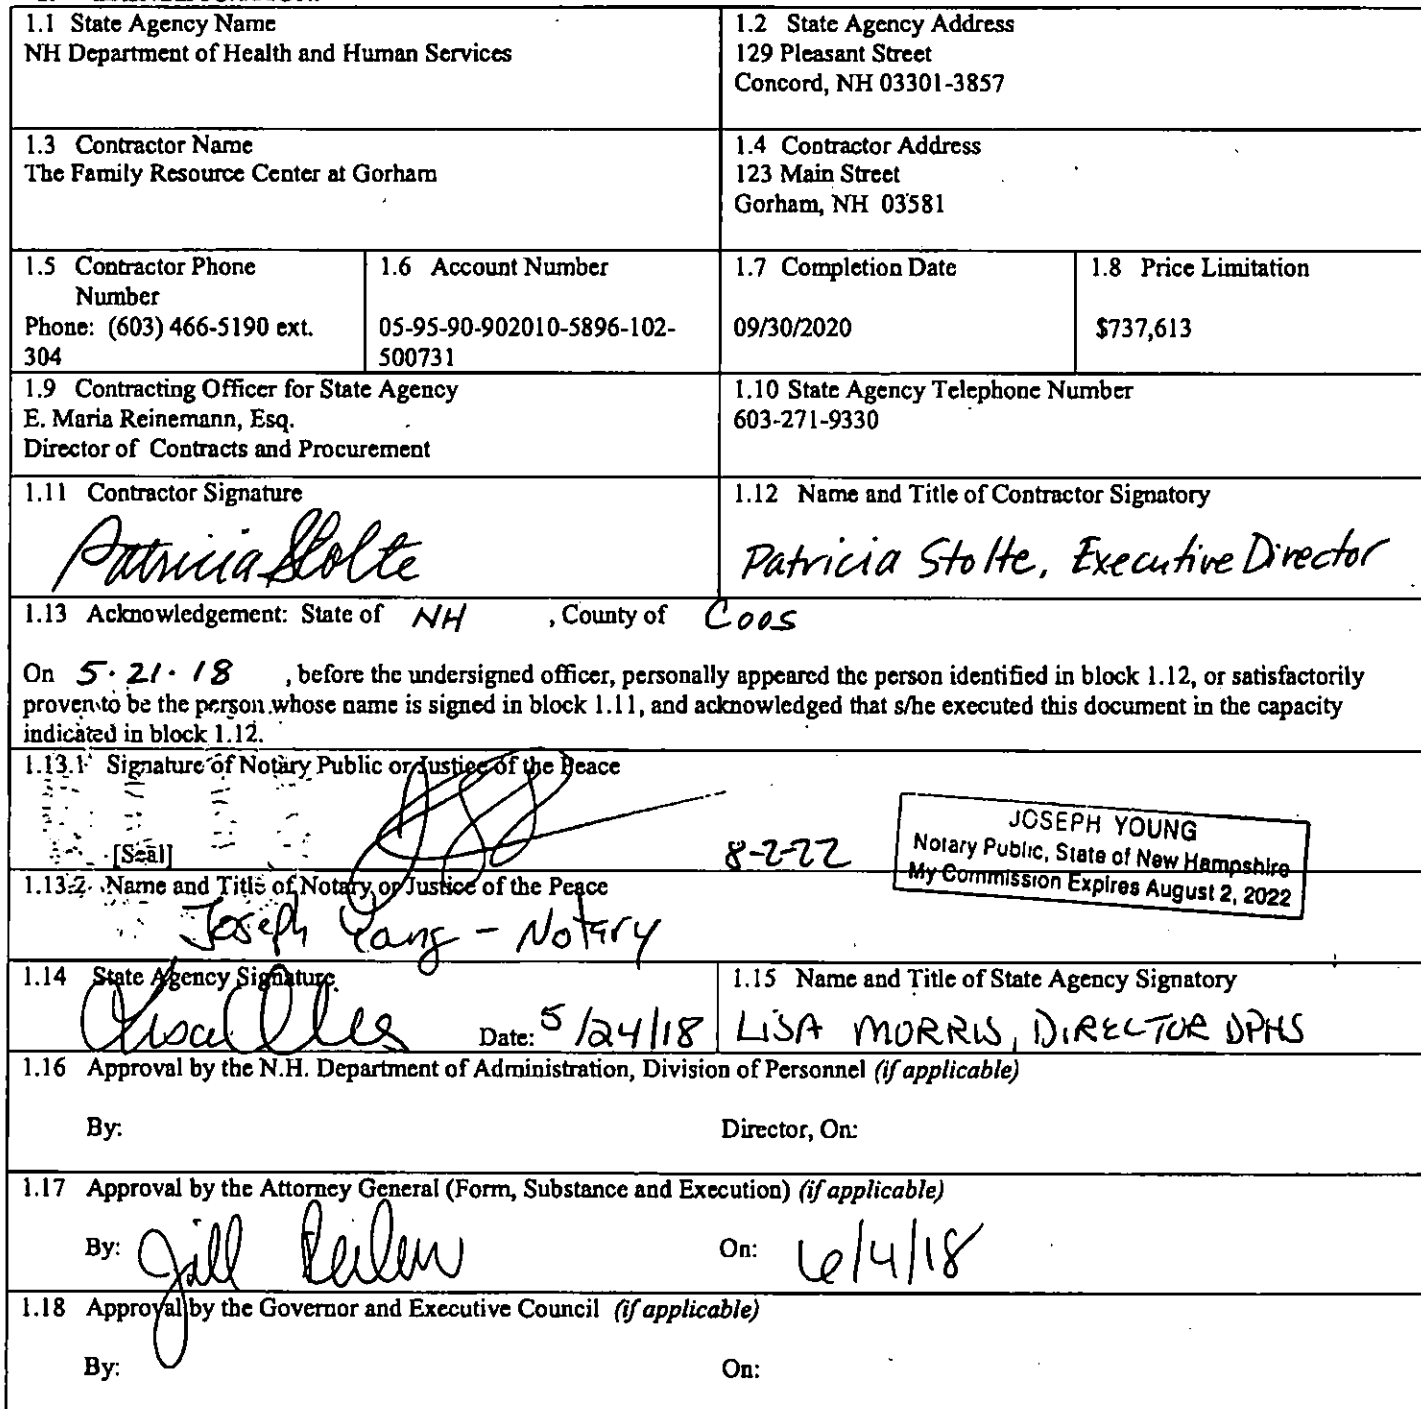 1.1 State Agency Name
NH Department of Health and Human Services
1.2 State Agency Address
129 Pleasant Street
Concord, NH 03301-3857
1.3 Contractor Name
The Family Resource Center at Gorham
1.4 Contractor Address
123 Main Street
Gorham, NH 03581
1.5 Contractor Phone
Number
Phone: (603) 466-5190 ext.
304
1.6 Account Number
05-95-90-902010-5896-102-
500731
1.7 Completion Date
09/30/2020
1.8 Price Limitation
$737,613
1.9 Contracting Officer for State Agency
E. Maria Reinemann, Esq.
Director of Contracts and Procurement
1.10 State Agency Telephone Number
603-271-9330
1.11 Contractor Signature
Patricia Stolte
1.12 Name and Title of Contractor Signatory
Patricia Stolte, Executive Director
1.13 Acknowledgement: State of NH , County of Coos
On 5·21·18 , before the undersigned officer, personally appeared the person identified in block 1.12, or satisfactorily
proven to be the person whose name is signed in block 1.11, and acknowledged that s/he executed this document in the capacity
indicated in block 1.12.
1.13.1 Signature of Notary Public or Justice of the Peace
[Seal]
8-2-22
JOSEPH YOUNG
Notary Public, State of New Hampshire
My Commission Expires August 2, 2022
1.13.2 Name and Title of Notary or Justice of the Peace
Joseph Young - Notary
1.14 State Agency Signature
Date: 5/24/18
1.15 Name and Title of State Agency Signatory
LISA MORRIS, DIRECTOR DPHS
1.16 Approval by the N.H. Department of Administration, Division of Personnel (if applicable)
By:
Director, On:
1.17 Approval by the Attorney General (Form, Substance and Execution) (if applicable)
By: Jill
On: 6/4/18
1.18 Approval by the Governor and Executive Council (if applicable)
By:
On: